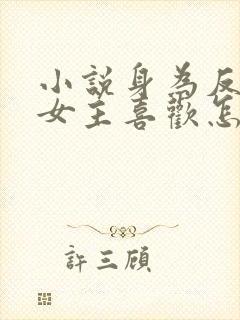 小說身為反
女主喜歡怎
許三顧